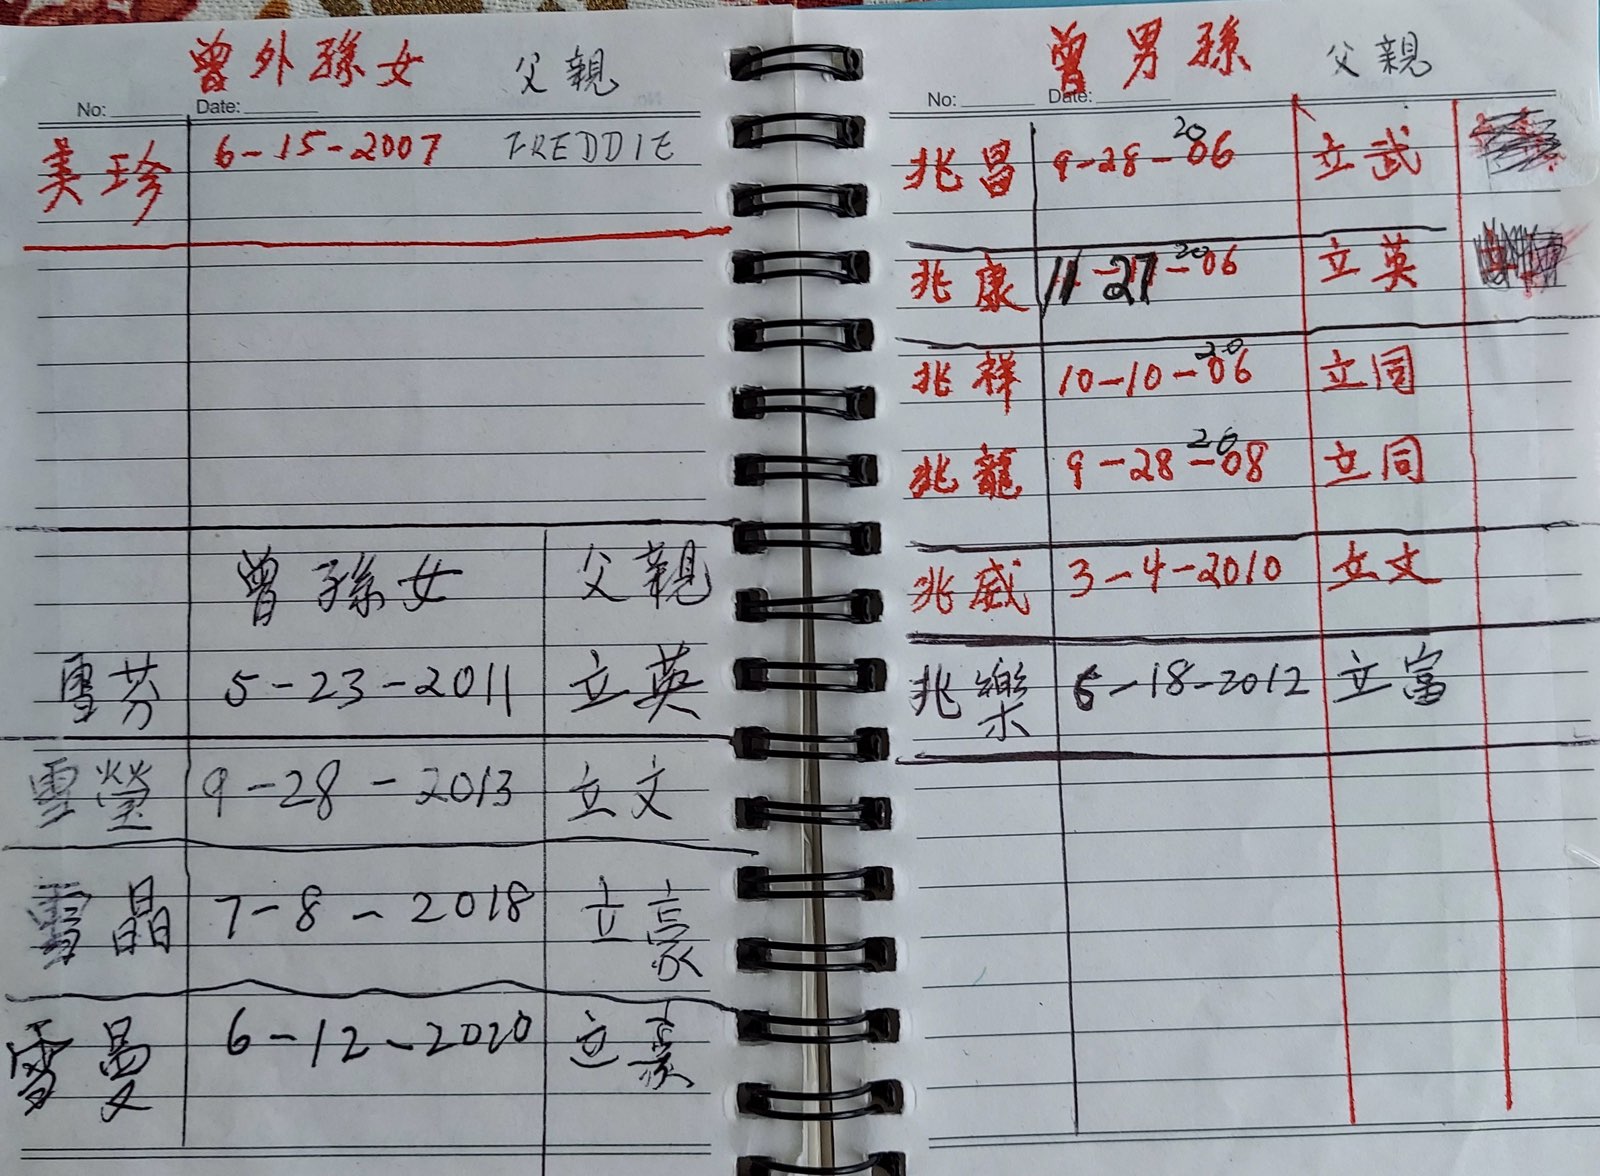 曾外孫女 父親
No: Date:
美珍 6-15-2007 FREDDIE
曾孫女 父親
雪芬 5-23-2011 立英
雪瑩 9-28-2013 立文
雪晶 7-8-2018 立豪
雪曼 6-12-2020 立豪
曾男孫 父親
No: Date:
兆昌 9-28-2006 立武
兆康 11-27-2006 立英
兆祥 10-10-2006 立同
兆龍 9-28-2008 立同
兆威 3-4-2010 立文
兆樂 6-18-2012 立富